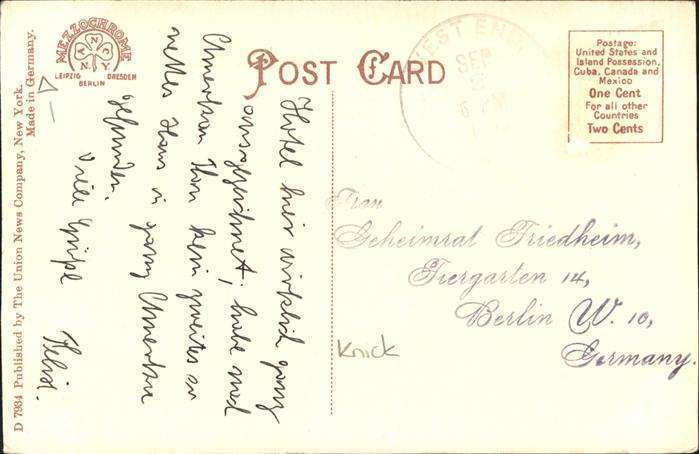 POST CARD
WEST EN
SEP
6 PM
Postage:
United States and
Island Possession,
Cuba, Canada and
Mexico
One Cent
For all other
Countries
Two Cents
MEZZOCHROME
NANCY
LEIPZIG DRESDEN
BERLIN
D 7934 Published by The Union News Company, New York.
Made in Germany.
Hotel hier wirklich ganz
ausgezeichnet, habe
kein zweites so
nettes Haus in ganz Amerika
gefunden.
Viele Grüße Felix.
Frau
Geheimrat Friedheim,
Tiergarten 14,
Berlin W. 10,
Germany.
Knick